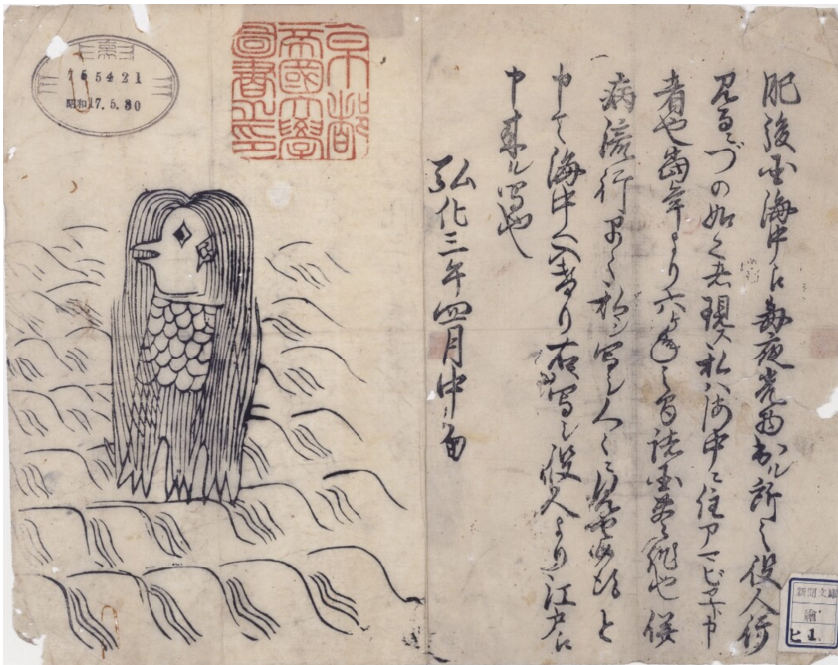 肥後国海中え毎夜光物出ル所之役人行
見るニづの如之者現ス私ハ海中ニ住アマビヱト申
者也当年より六ヶ年之間諸国豊作也併
病流行早々私シ写シ人々ニ見せ候得と
申て海中へ入けり右写シ役人より江戸え
申来ル写也
弘化三年四月中旬
京都
帝國大學
圖書之印
昭和17.5.30
新聞文庫
繪
ヒ1